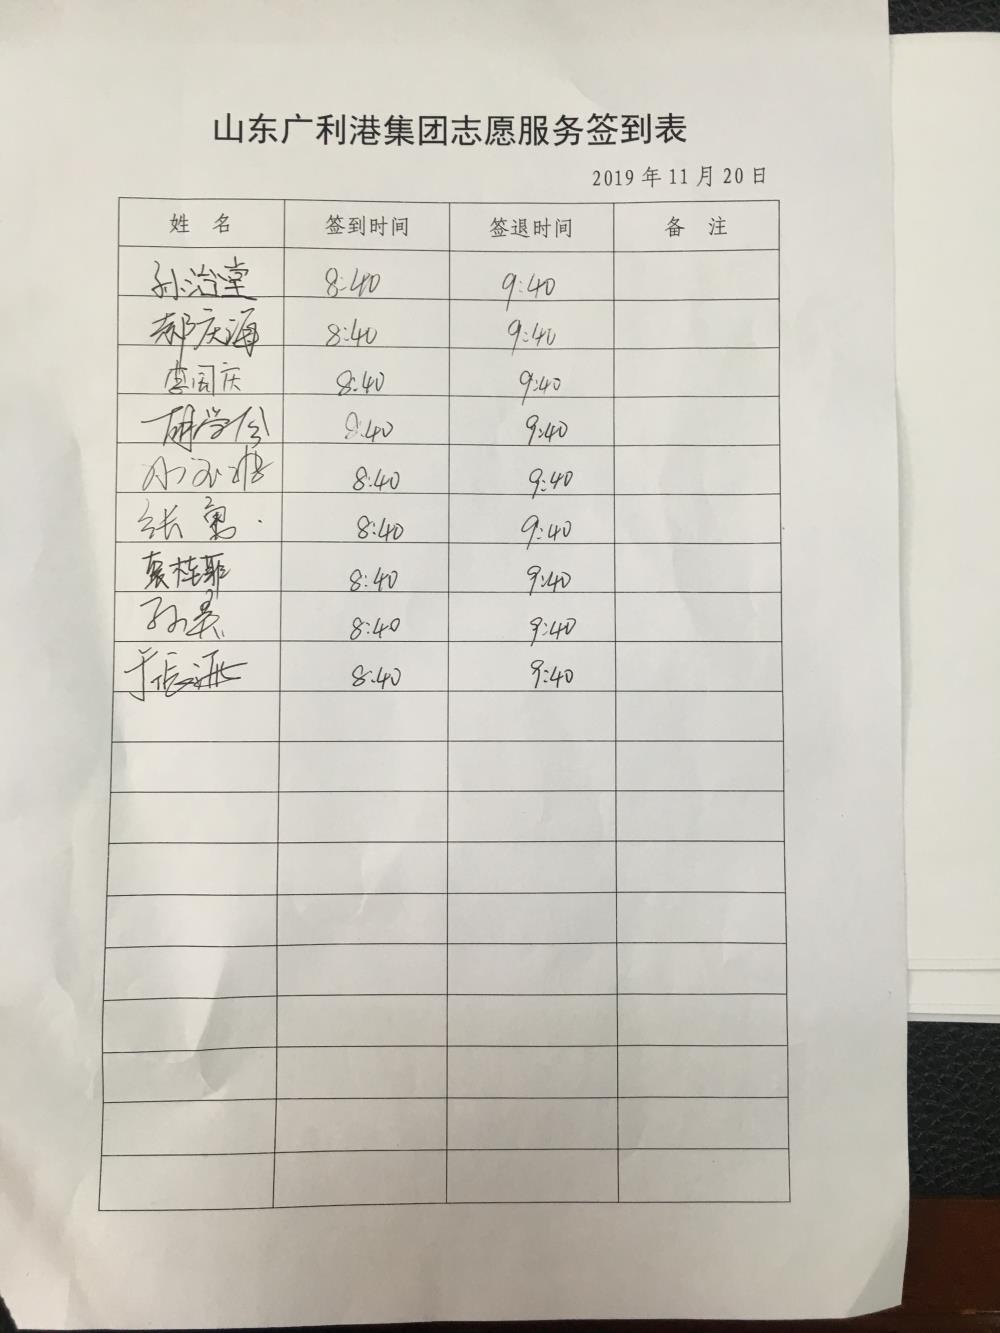 山东广利港集团志愿服务签到表
2019年11月20日
姓 名 签到时间 签退时间 备 注
孙治堂 8:40 9:40
郝庆海 8:40 9:40
李国庆 8:40 9:40
胡学俭 8:40 9:40
8:40 9:40
张勇 8:40 9:40
袁桂菲 8:40 9:40
孙昊 8:40 9:40
8:40 9:40